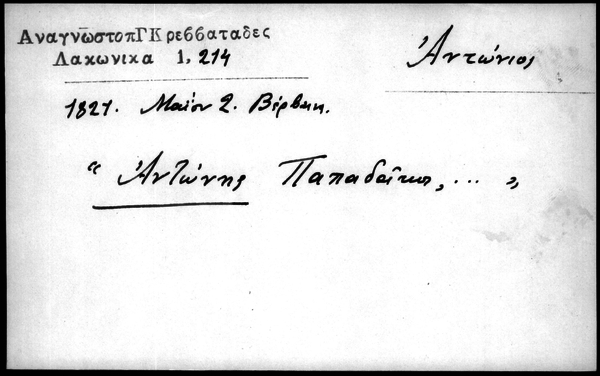 ΑναγνωστοπΓΚρεββαταδες
Λακωνικα 1, 214
Ἀντώνιος
1821. Μαΐου 2. Βέρβενα.
“ Ἀντώνης Παπαδαῖκος, ... ”